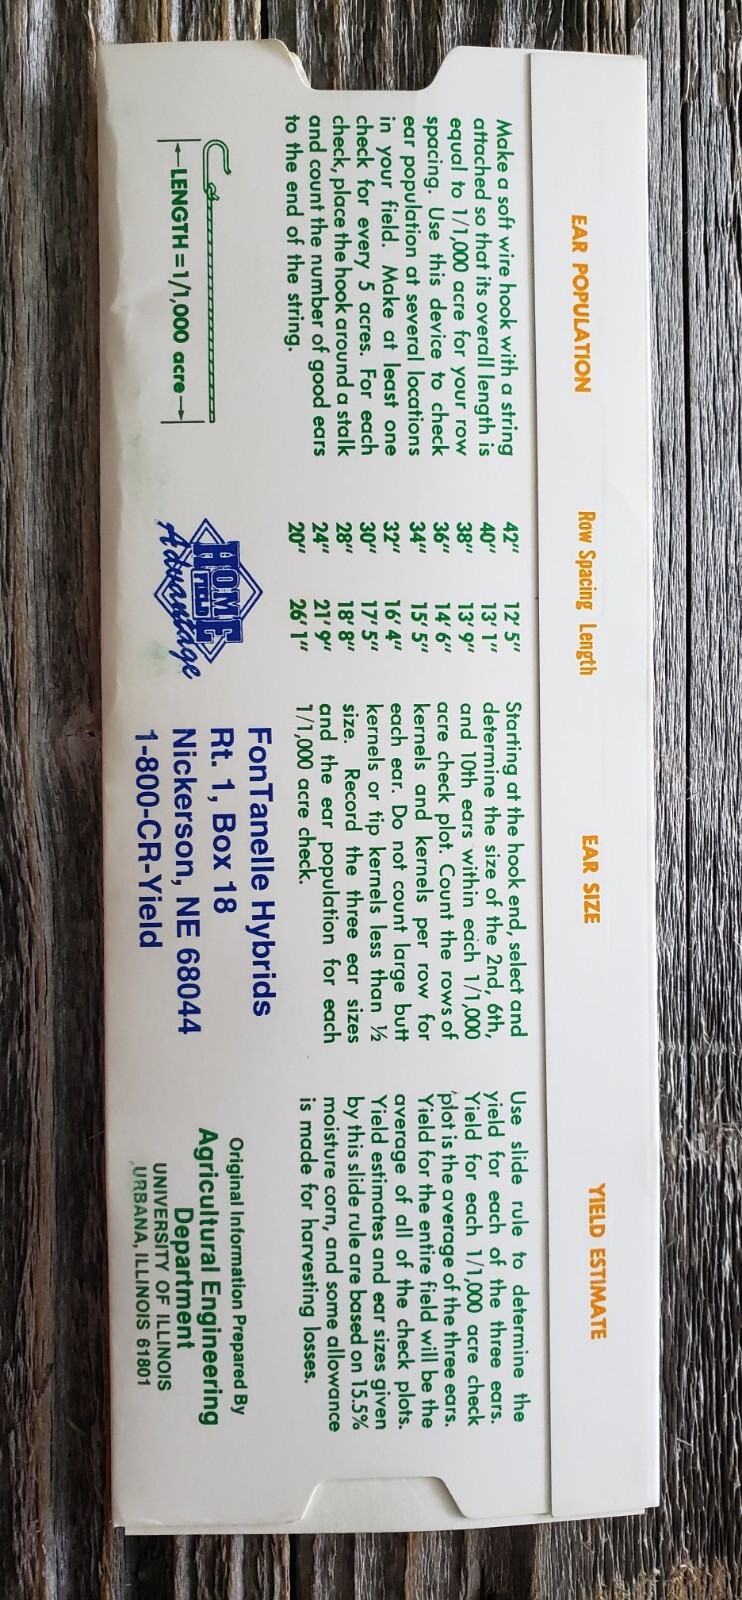 EAR POPULATION
Make a soft wire hook with a string
attached so that its overall length is
equal to 1/1,000 acre for your row
spacing. Use this device to check
ear population at several locations
in your field. Make at least one
check for every 5 acres. For each
check, place the hook around a stalk
and count the number of good ears
to the end of the string.
LENGTH = 1/1,000 acre
Row Spacing Length
42" 12' 5"
40" 13' 1"
38" 13' 9"
36" 14' 6"
34" 15' 5"
32" 16' 4"
30" 17' 5"
28" 18' 8"
24" 21' 9"
20" 26' 1"
HOME
FIELD
Advantage
EAR SIZE
Starting at the hook end, select and
determine the size of the 2nd, 6th,
and 10th ears within each 1/1,000
acre check plot. Count the rows of
kernels and kernels per row for
each ear. Do not count large butt
kernels or tip kernels less than ½
size. Record the three ear sizes
and the ear population for each
1/1,000 acre check.
FonTanelle Hybrids
Rt. 1, Box 18
Nickerson, NE 68044
1-800-CR-Yield
YIELD ESTIMATE
Use slide rule to determine the
yield for each of the three ears.
Yield for each 1/1,000 acre check
plot is the average of the three ears.
Yield for the entire field will be the
average of all of the check plots.
Yield estimates and ear sizes given
by this slide rule are based on 15.5%
moisture corn, and some allowance
is made for harvesting losses.
Original Information Prepared By
Agricultural Engineering
Department
UNIVERSITY OF ILLINOIS
URBANA, ILLINOIS 61801